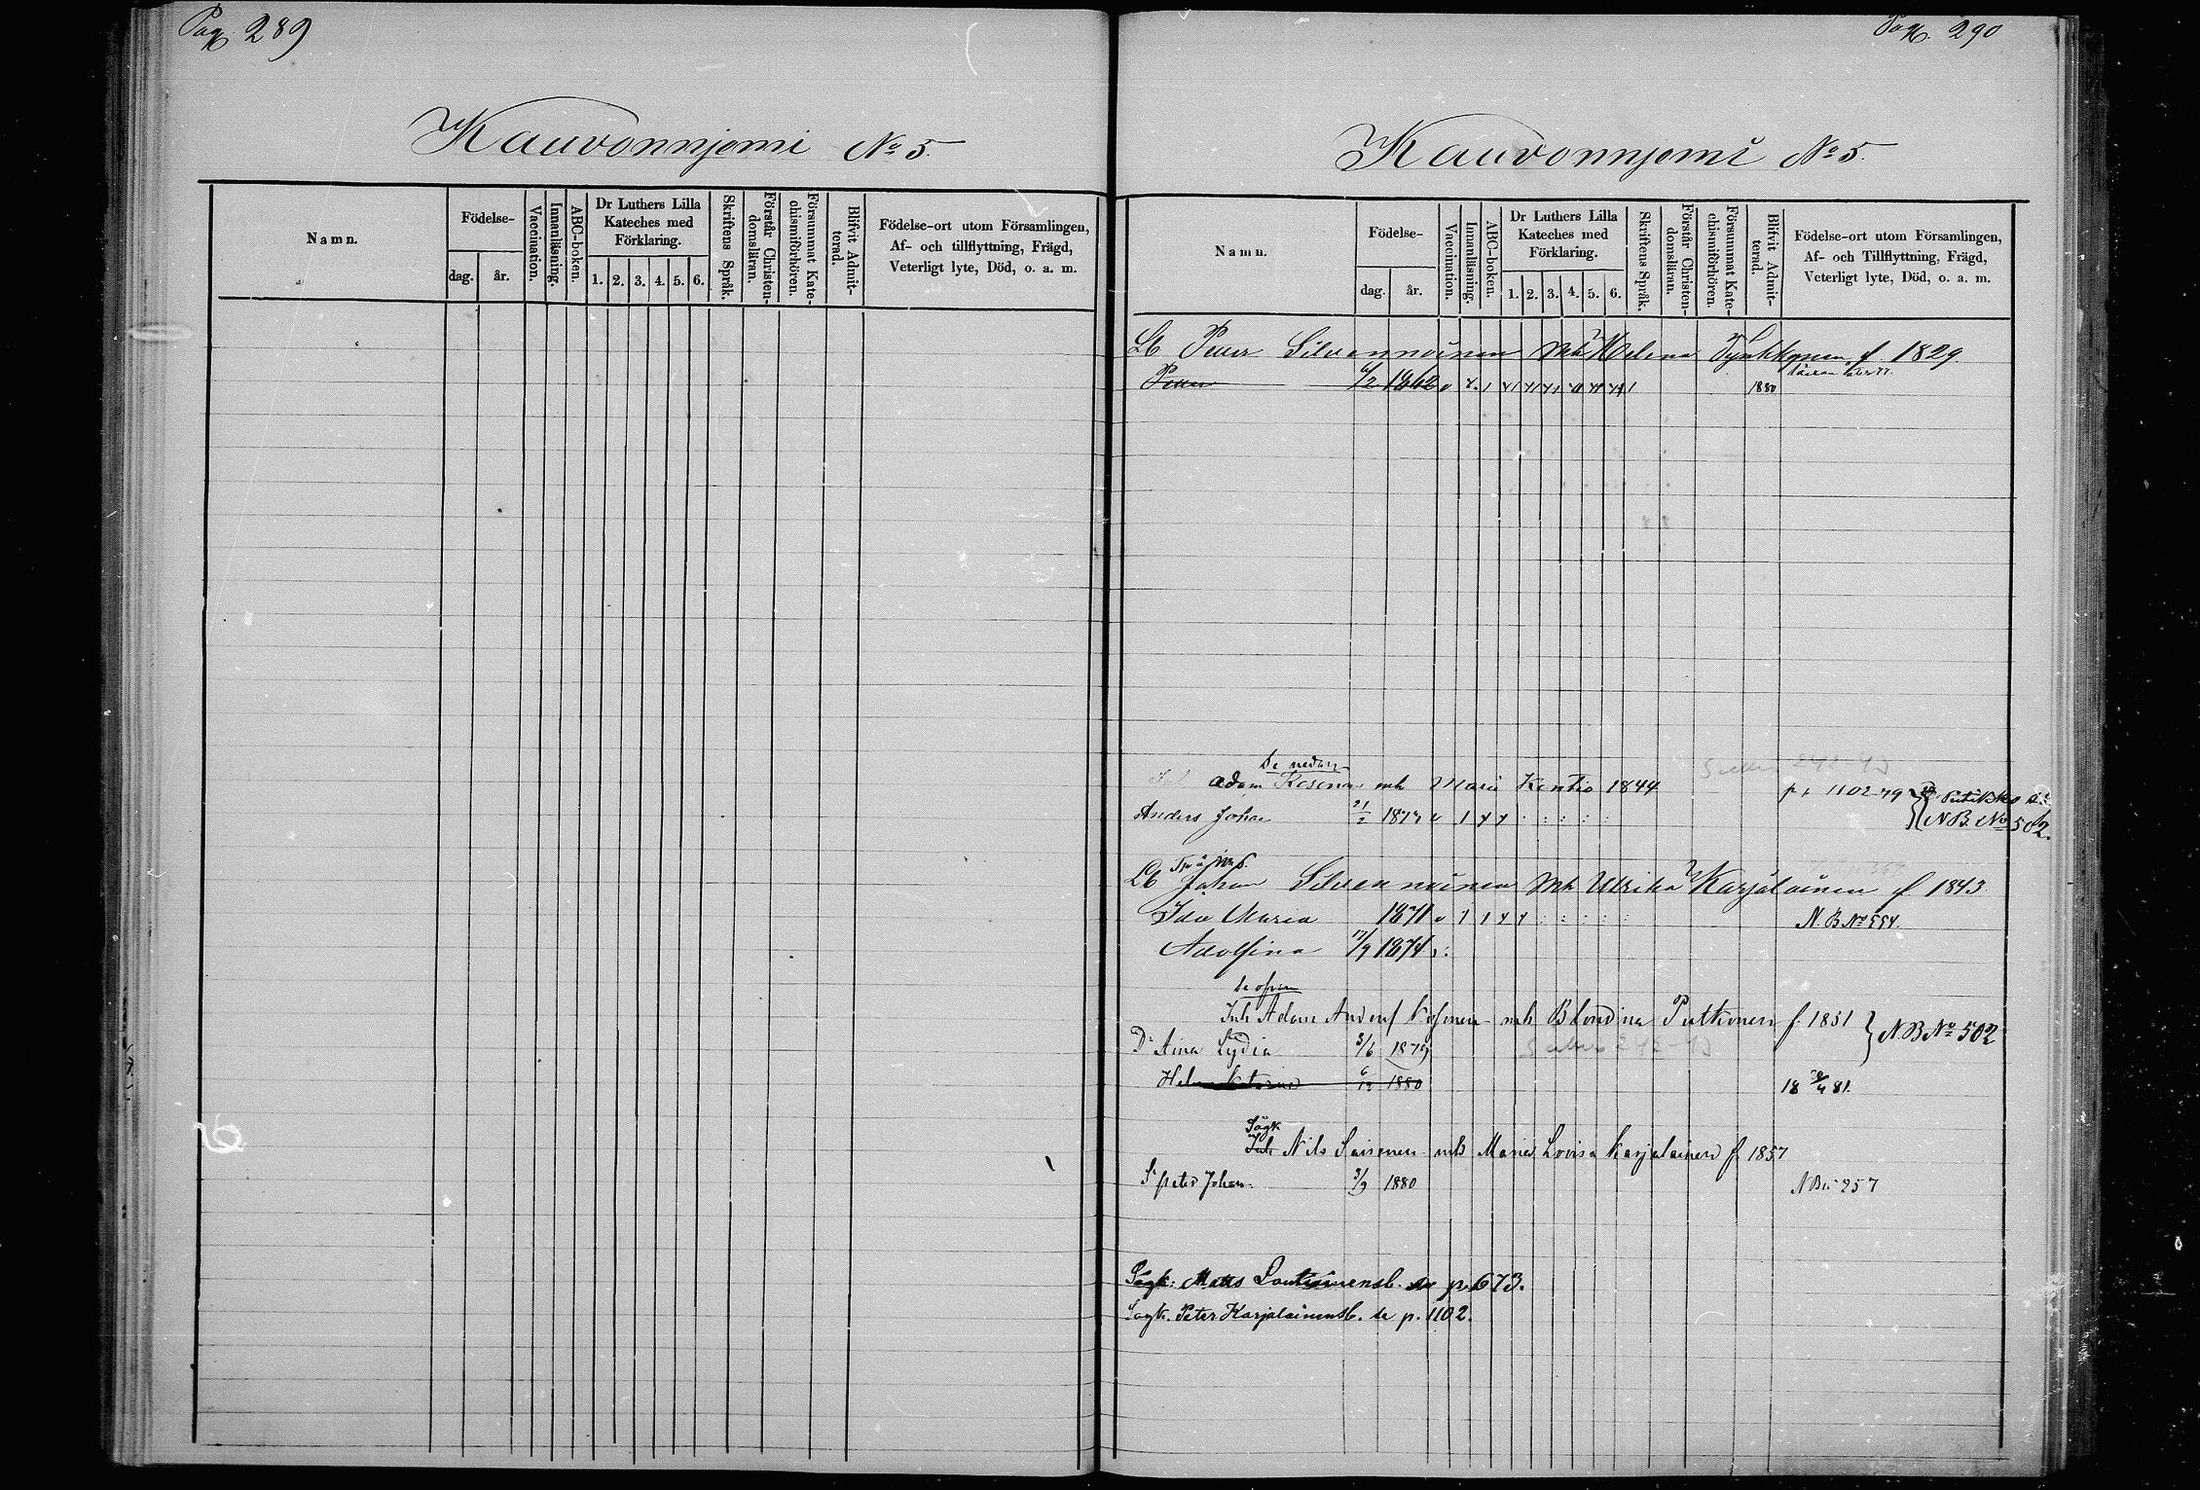 Pag. 289
Kauvonnjemi No 5.
Namn.
Födelse-
dag.
år.
Vaccination.
Innanläsning.
ABC-boken.
Dr Luthers Lilla
Kateches med
Förklaring.
1. 2. 3. 4. 5. 6.
Skriftens Språk.
Förstår Christen-
domsläran.
Försummat Kate-
chismiförhören.
Blifvit Admit-
terad.
Födelse-ort utom Församlingen,
Af- och tillflyttning, Frägd,
Veterligt lyte, Död, o. a. m.
Pag. 290
Kauvonnjemi No 5.
Namn.
Födelse-
dag.
år.
Vaccination.
Innanläsning.
ABC-boken.
Dr Luthers Lilla
Kateches med
Förklaring.
1. 2. 3. 4. 5. 6.
Skriftens Språk.
Förstår Christen-
domsläran.
Försummat Kate-
chismiförhören.
Blifvit Admit-
terad.
Födelse-ort utom Församlingen,
Af- och Tillflyttning, Frägd,
Veterligt lyte, Död, o. a. m.
Peter Silvennoinen mh Helena Tynkkynen f 1829.
Peter 1862 1880
se nedan
Adam Kosonen mh Maria Kontio 1844 p. 1102-79
Anders Johan 21/2 1873 NB. No 502.
Johan Silvennoinen mh Ulrika Karjalainen f 1843
Ida Maria 1871 N.B No 554.
Adolfina 17/9 1874
se ofvan
Inh Adam Kosonen mh Blondina Putkonen f. 1851
Dr Aina Lydia 3/6 1879 NB No 502
6/12 1880 18 81.
Sågk
Inh Nils Saisonen mh Maria Lovisa Karjalainen f 1857
S. Peter Johan 3/9 1880 NB 257
Sågk: Matts p. 673.
Sågk. Peter Karjalainens b. se p. 1102.